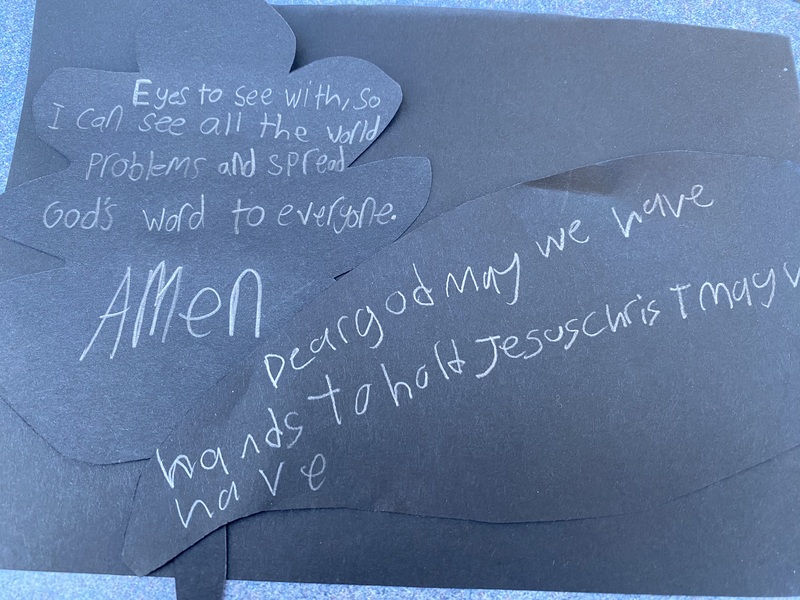 Eyes to see with, so
I can see all the world
problems and spread
God's word to everyone.
AMen
Dear god May we have
hands to hold Jesus Christ may
have